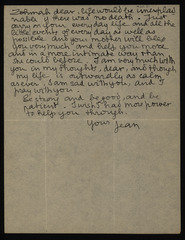 dear, life would be
if there was no death. Just
carry on your everyday life and all the
little events of every day as well as
possible and your mother will bless
you very much and help you more
and in a more intimate way than
she could before. I am very much with
you in my thought, dear, and though
my life is outwardly as calm
as ever I am sad with you, and I
pray with you.
Be strong and be good, and be
patient. I wish I had more power
to help you through.
Your Jean